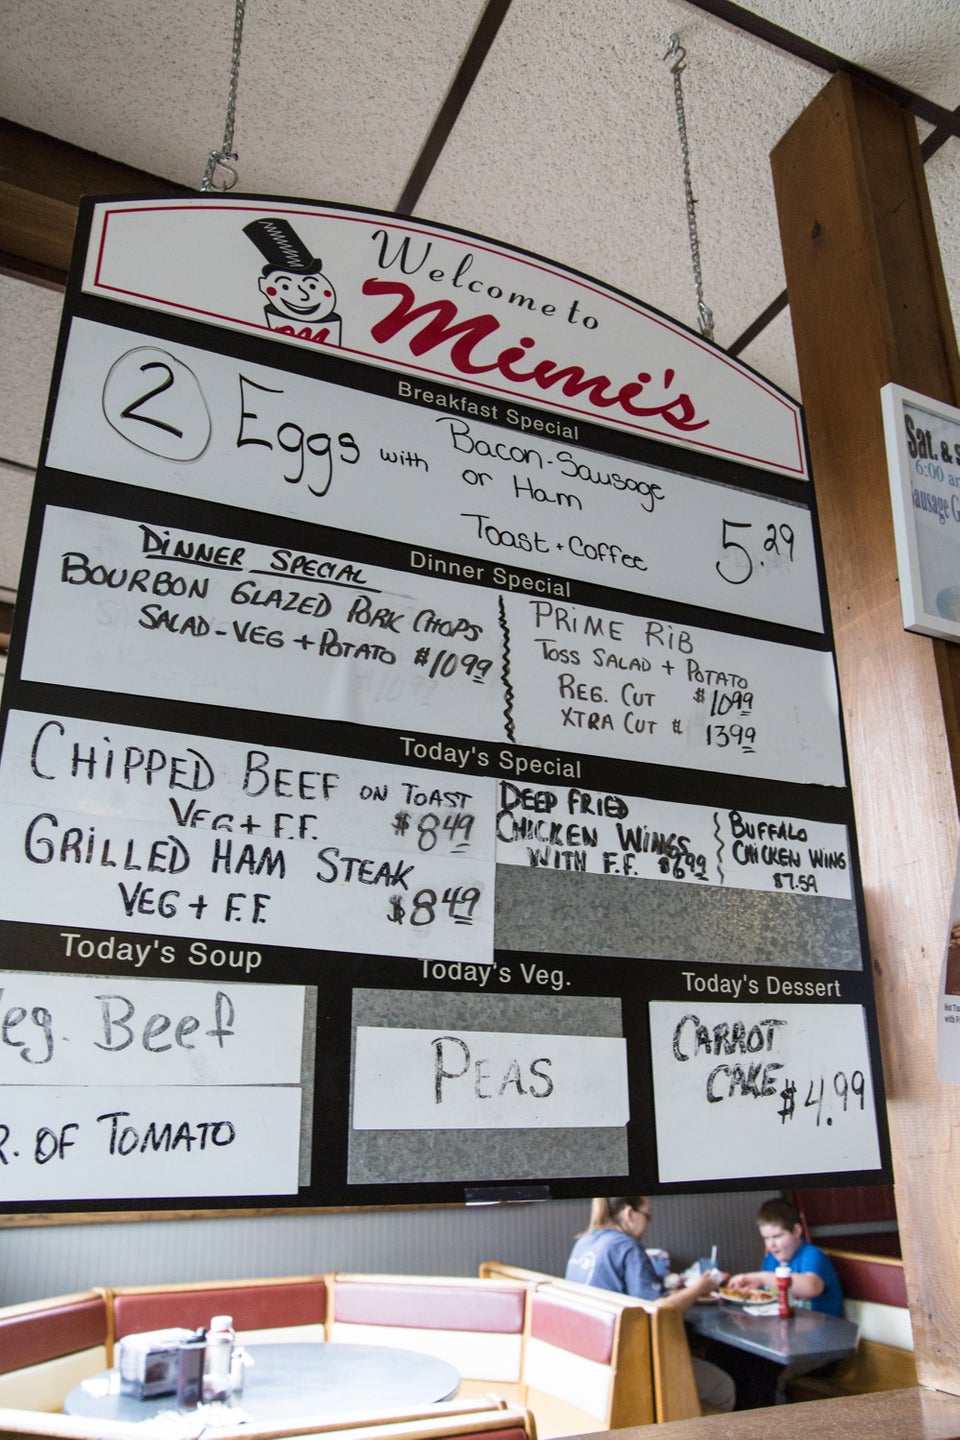 Welcome to
Mimi's
Breakfast Special
2 Eggs with Bacon-Sausage
or Ham
Toast + Coffee 5.29
Dinner Special
DINNER SPECIAL
BOURBON GLAZED PORK CHOPS
SALAD-VEG + POTATO $10.99
PRIME RIB
TOSS SALAD + POTATO
REG. CUT $10.99
XTRA CUT $13.99
Today's Special
CHIPPED BEEF ON TOAST
VEG + F.F. $8.49
GRILLED HAM STEAK
VEG + F.F. $8.49
DEEP FRIED
CHICKEN WINGS
WITH F.F. $6.99
BUFFALO
CHICKEN WING
$7.59
Today's Soup
eg. Beef
R. OF TOMATO
Today's Veg.
PEAS
Today's Dessert
CARROT
CAKE $4.99
Sat. & S
6:00 a
ausage G